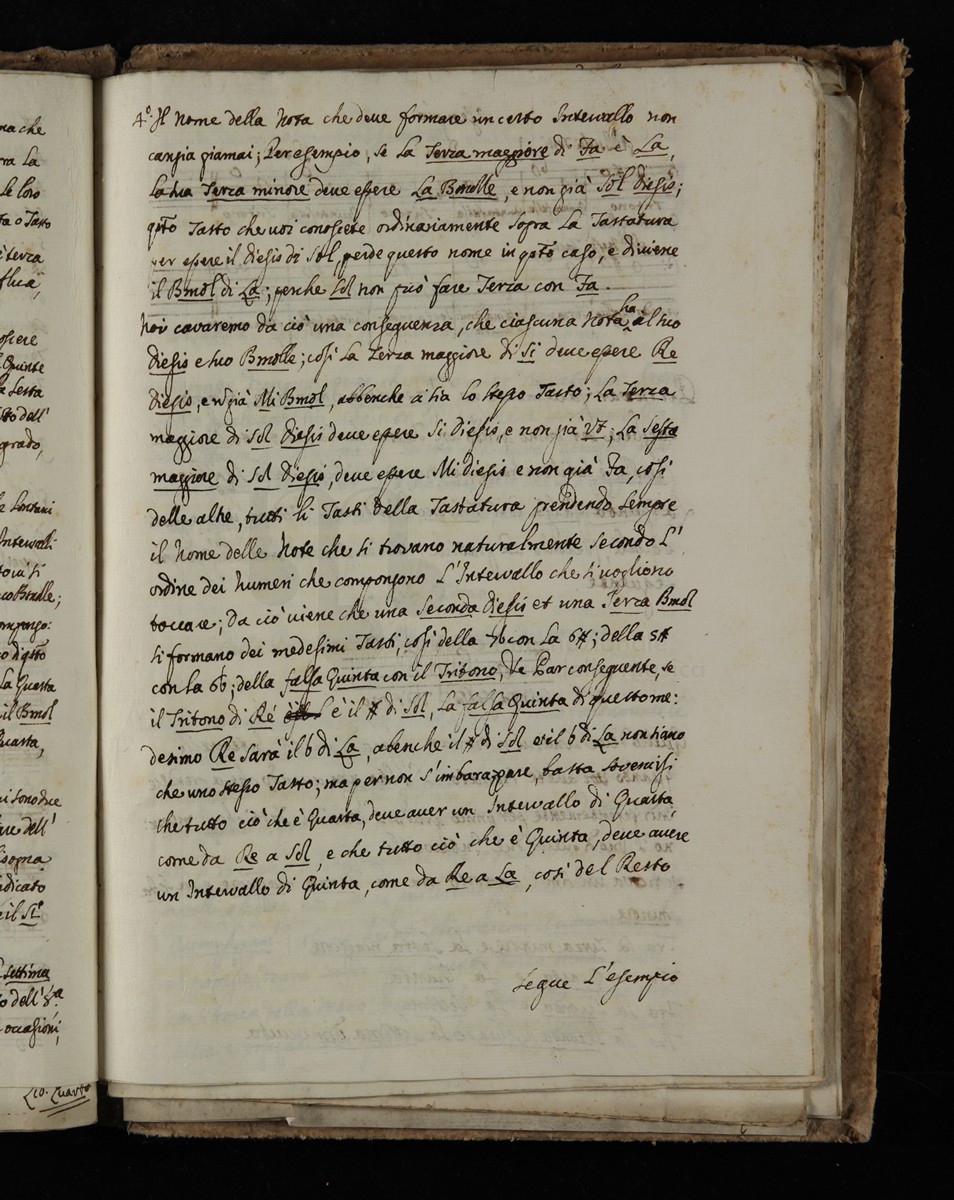 na che
ra La
Le loro
ta o Tasto
è terza
oscere
Quinte
a Sesta
sto dell'
grado,
Intervalli
co Bmolle;
La Quarta
il Bmol
Quarta,
ni sono due
are dell'
sopra
ndicato
è il Si.
Settima
o dell' 8.va
occasioni,
Lio. Quarto
4.o Il nome della Nota che deve formare un certo Intervallo non
cangia giamai; Per esempio, se La Terza maggiore di Fa è La,
La sua Terza minore deve essere La Bmolle, e non già Sol diesis;
qsto Tasto che voi conoscete ordinariamente sopra La Tastatura
per essere il diesis di Sol, perde questo nome in qsto caso, e diviene
il Bmol di La; perche Sol non può fare Terza con Fa.
Noi cavaremo da ciò una conseguenza, che ciascuna Nota ha il suo
diesis e suo Bmolle; così La Terza maggiore di Si deve essere Re
diesis, e nō già Mi Bmol, abbenche sia lo stesso Tasto; La Terza
maggiore di Sol diesis deve essere Si diesis, e non già Vt; La Sesta
maggiore di Sol diesis, deve essere Mi diesis e non già Fa, così
delle altre, tutti li Tasti della Tastatura prendendo sempre
il nome delle Note che si trovano naturalmente secondo L'
ordine dei numeri che compongono L'Intervallo che si vogliono
toccare; da ciò viene che una Seconda diesis et una Terza Bmol
si formano dei medesimi Tasti, così della 7b con La 6#; della 5#
con la 6b; della falsa Quinta con il Tritono, Par conseguente, se
il Tritono di Re è il # di Sol, La falsa Quinta di questo me:
desimo Re sarà il b di La, abenche il # di Sol et il b di La non siano
che uno stesso Tasto; ma per non s'imbarazzare, basta sovenirsi
che tutto ciò che è Quarta, deve aver un Intervallo di Quarta,
come da Re a Sol, e che tutto ciò che è Quinta, deve avere
un Intervallo di Quinta, come da Re a La, così del Resto
Segue L'esempio